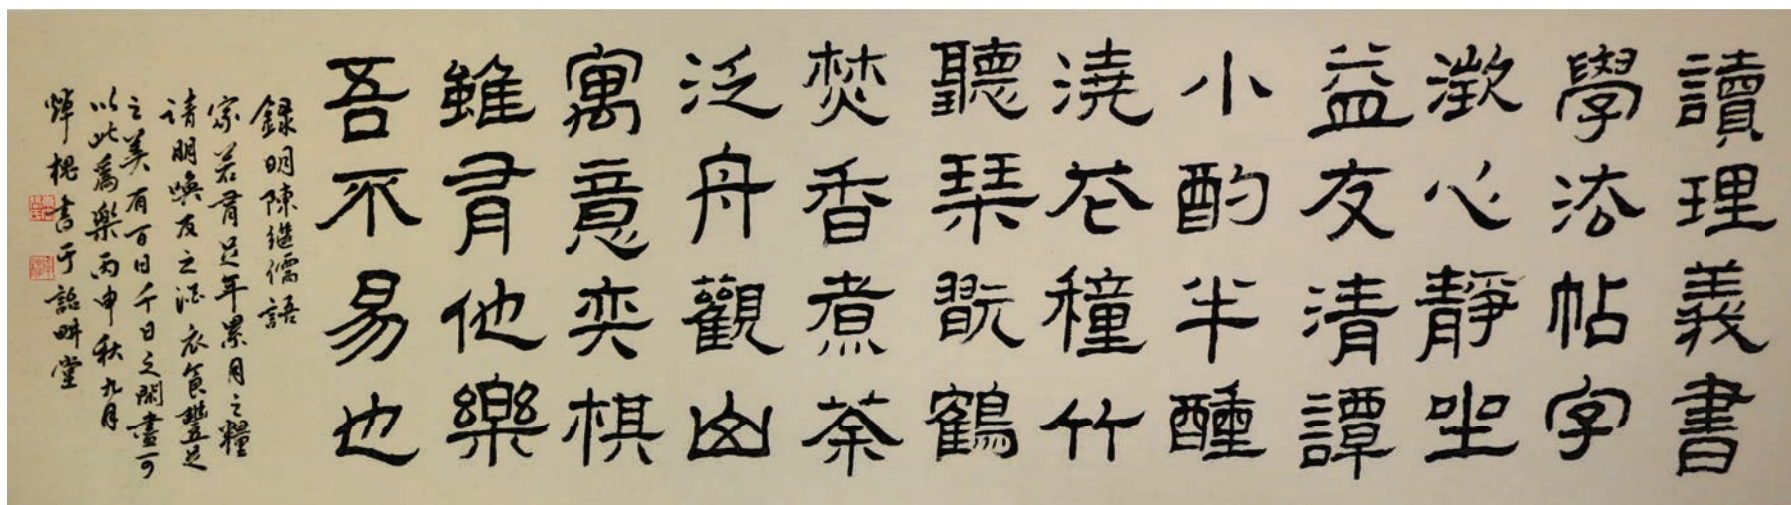 讀理義書
學法帖字
澂心靜坐
益友清譚
小酌半醺
澆花穜竹
聽琴翫鶴
焚香煮茶
泛舟觀山
寓意奕棋
雖有他樂
吾不易也
録明陳繼儒語
家若有足年累月之糧
请朋喚友之酒衣食豐足
之美有百日千日之閑盡可
以此爲樂丙申秋九月
焯槐書于詒畊堂